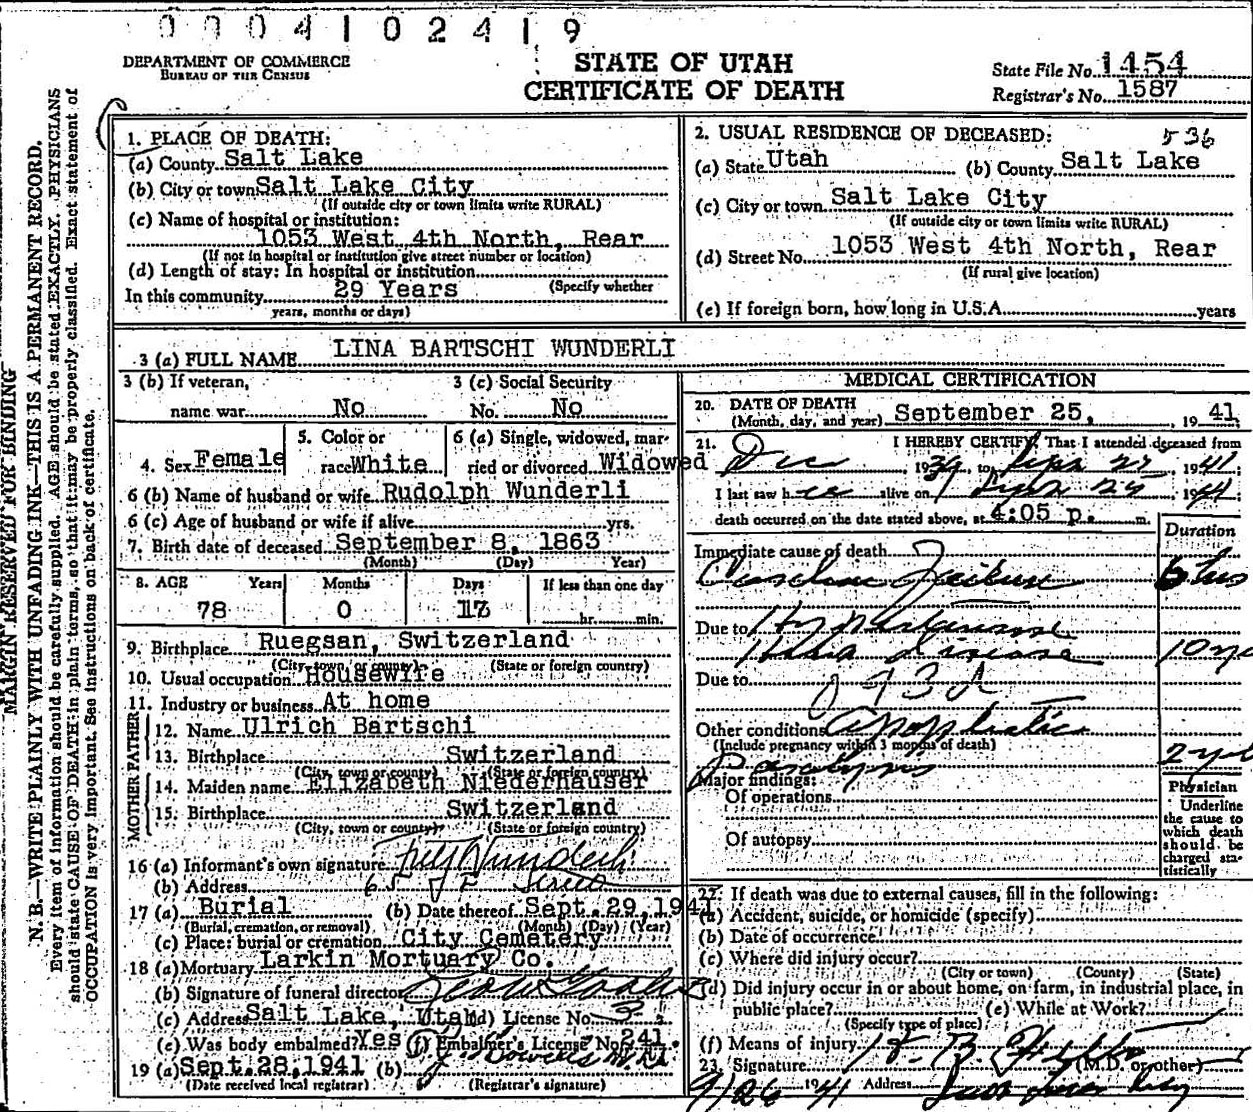 0004102419
DEPARTMENT OF COMMERCE
BUREAU OF THE CENSUS
STATE OF UTAH
CERTIFICATE OF DEATH
State File No. 1454
Registrar's No. 1587
MARGIN RESERVED FOR BINDING
N. B.—WRITE PLAINLY WITH UNFADING INK—THIS IS A PERMANENT RECORD.
Every item of information should be carefully supplied. AGE should be stated EXACTLY. PHYSICIANS
should state CAUSE OF DEATH in plain terms, so that it may be properly classified. Exact statement of
OCCUPATION is very important. See instructions on back of certificate.
1. PLACE OF DEATH:
(a) County Salt Lake
(b) City or town Salt Lake City
(If outside city or town limits write RURAL)
(c) Name of hospital or institution:
1053 West 4th North, Rear
(If not in hospital or institution give street number or location)
(d) Length of stay: In hospital or institution
(Specify whether
In this community 29 Years
years, months or days)
2. USUAL RESIDENCE OF DECEASED: 536
(a) State Utah (b) County Salt Lake
(c) City or town Salt Lake City
(If outside city or town limits write RURAL)
(d) Street No. 1053 West 4th North, Rear
(If rural give location)
(e) If foreign born, how long in U.S.A. years
3 (a) FULL NAME LINA BARTSCHI WUNDERLI
3 (b) If veteran,
name war No
3 (c) Social Security
No. No
4. Sex Female
5. Color or
race White
6 (a) Single, widowed, mar-
ried or divorced Widowed
6 (b) Name of husband or wife Rudolph Wunderli
6 (c) Age of husband or wife if alive yrs.
7. Birth date of deceased September 8, 1863
(Month) (Day) Year)
8. AGE Years Months Days If less than one day
78 0 17 hr. min.
9. Birthplace Ruegsan, Switzerland
(City, town, or county) (State or foreign country)
10. Usual occupation Housewife
11. Industry or business At home
FATHER
12. Name Ulrich Bartschi
13. Birthplace Switzerland
(City, town or county) (State or foreign country)
MOTHER
14. Maiden name Elizabeth Niederhauser
15. Birthplace Switzerland
(City, town or county) (State or foreign country)
16 (a) Informant's own signature Wunderli
(b) Address
17 (a) Burial (b) Date thereof Sept. 29, 1941
(Burial, cremation, or removal) (Month) (Day) (Year)
(c) Place: burial or cremation City Cemetery
18 (a) Mortuary Larkin Mortuary Co.
(b) Signature of funeral director
(c) Address Salt Lake, Utah (d) License No. 3
(e) Was body embalmed? Yes (f) Embalmer's License No. 241.
19 (a) Sept. 28, 1941 (b)
(Date received local registrar) (Registrar's signature)
MEDICAL CERTIFICATION
20. DATE OF DEATH
(Month, day, and year) September 25, 1941
21. I HEREBY CERTIFY, That I attended deceased from
Dec 1939, to Sept 25 1941
I last saw her alive on Sept 25 1941
death occurred on the date stated above, at 4:05 p. m.
Duration
Immediate cause of death
Cardiac Failure 6 hrs
Due to Hypertensive
Heart disease 10 yrs
Due to 093d
Other conditions Apoplectic
(Include pregnancy within 3 months of death)
Paralysis 2 yrs
Major findings:
Of operations
Of autopsy
Physician
Underline
the cause to
which death
should be
charged sta-
tistically
22. If death was due to external causes, fill in the following:
(a) Accident, suicide, or homicide (specify)
(b) Date of occurrence
(c) Where did injury occur?
(City or town) (County) (State)
(d) Did injury occur in or about home, on farm, in industrial place, in
public place? (e) While at Work?
(Specify type of place)
(f) Means of injury
23. Signature (M.D. or other)
9/26 1941 Address Salt Lake City